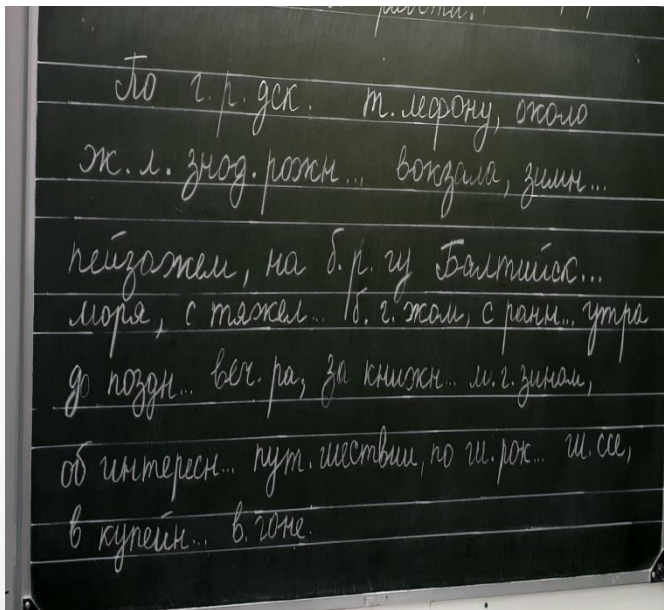 По г.р.дск. т.лефону, около
ж.л.знод.рожн... вокзала, зимн...
пейзажем, на б.р.гу Балтийск...
моря, с тяжел... б.г.жом, с ранн... утра
до поздн... веч.ра, за книжн... м.г.зином,
об интересн... пут.шествии, по ш.рок... ш.ссе,
в купейн... в.гоне.